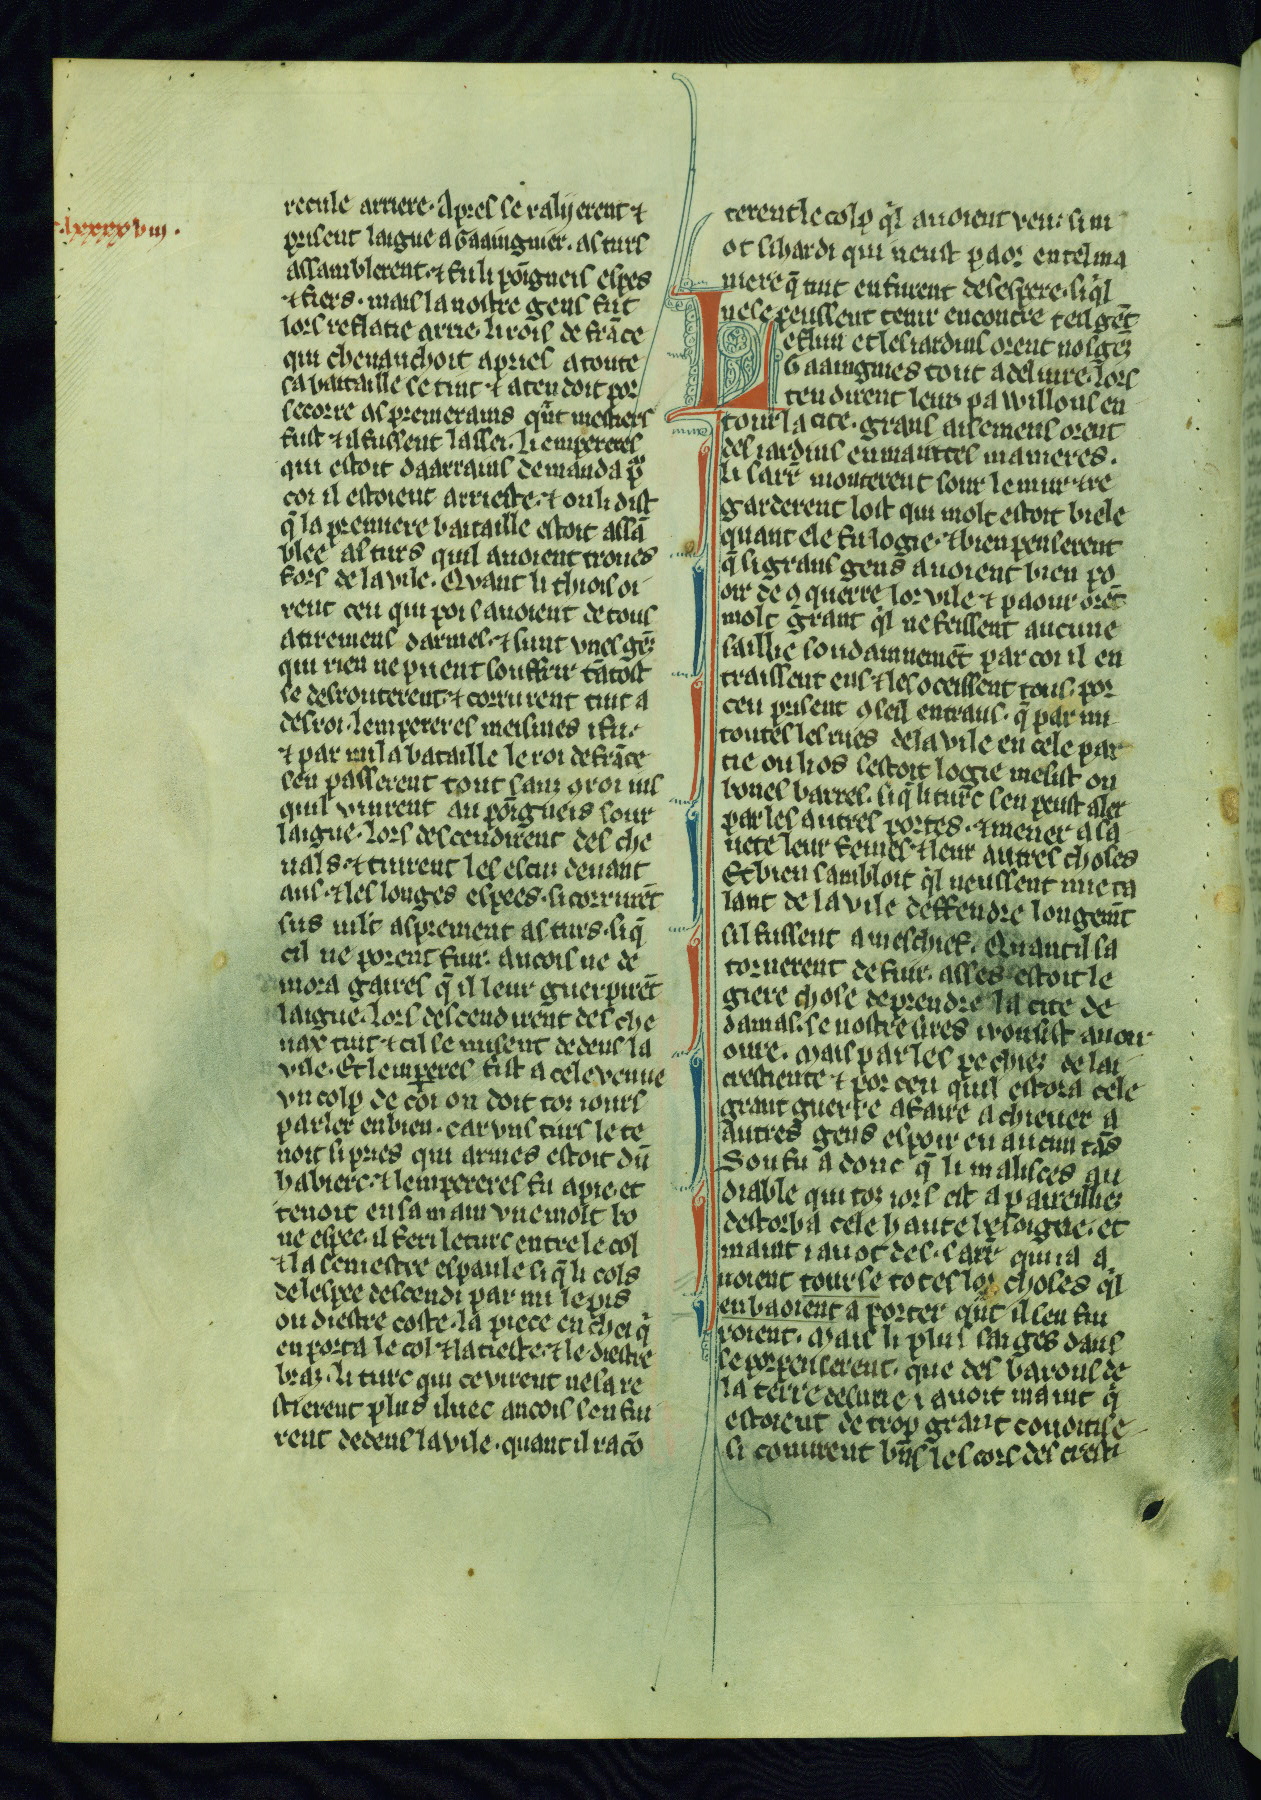 .lxxxxviii.
recule arriere. Apres se ralyerent ⁊
prisent laigue a Gaaingnier. as turs
assamblerent. ⁊ fu li põigneis espes
⁊ fiers. mais la nostre gens fut
lors reslatie arrie. li rois de frãce
qui cheuauchoit apries a toute
sa bataille se tint ⁊ atendoit por
secorre as premerains qñt mestiers
fust ⁊ il fussent lassei. li empereres
qui estoit daarrains demanda p
coi il estoient arrieste. ⁊ on li dist
q̃ la premiere bataille estoit assã
blee as turs quil auoient troues
fors de la vile. Quant li thiois oi
rent ceu qui pois auoient de tous
atiremens darmes. ⁊ sunt vnes gẽs
qui rien ne puent souffrir tãtost
se desrouterent ⁊ corrurent tuit a
desroi. lempereres meismes i fu.
⁊ par mi la bataille le roi de frãce
sen passerent tout sans 9roi ius
quil vinrent au põigneis sour
laigue. lors descendirent des che
uals. ⁊ tinrent les escus deuant
aus. ⁊ les longes espees. si corrurẽt
sus mlt asprement as turs. si q̃
cil ne porent fuir. ancois ne de
mora gaires q̃ il leur guerpirẽt
laigue. lors descendirent des che
uax tuit ⁊ cil se misent dedens la
vile. Et lemperes fist a cele venue
vn colp de coi on doit toz iours
parler en bien. car vns turs le te
noit si pries qui armes estoit dũ
haubierc. ⁊ lempereres fu a pie. et
tenoit en sa main vne molt bo
ne espee. il feri le turs entre le col
⁊ la seniestre espaule si q̃ li cols
de lespee descendi par mi le pis
ou diestre coste. la piece en chei q̃
en porta le col ⁊ la tieste ⁊ le diestre
braz. li turc qui ce virent ne sa re
stierent plus iluec ancois sen fui
rent dedens la vile. quant il racõ
terent le colp ql auoient veu. si ni
ot si hardi qui neust paor en tel ma
niere q̃ tuit en furent desespere. si ql
ne se peussent tenir encontre teil gẽt
Le flun et les iardins orent nos gẽz
Gaaingnies tout a deliure. lors
tendirent leurs pawillons en
tour la cite. grans aisemens orent
des iardins en maintes manieres.
li sarr̃ monterent sour le mur ⁊ re
garderent lost qui molt estoit biele
quant ele fu logie. ⁊ bien penserent
q̃ si grans gens auoient bien po
oir de 9querre lor vile ⁊ paour orẽt
molt grant ql ne feissent aucune
saillie soudainnemẽt par coi il en
traissent ens ⁊ les oceissent tous. por
ceu prisent 9seil entraus. q̃ par mi
toutes les rues de la vile en cele par
tie ou lios sestoit logie mesist on
bones barres. si q̃ li turc sen peust aler
par les autres portes. ⁊ mener a sa
uete leur femes ⁊ leur autres choses
Et bien sambloit ql neussent mie ta
lant de la vile deffendre longemt
sil fussent a meschief. Quant il sa
tornerent de fuir. asses estoit le
giere chose de prendre la cite de
damas. se nostre sires i vousist auoir
oure. Mais par les pechiez de lai
crestiente ⁊ por ceu quil estora cele
grant guerre a faire a chieuer a
autres gens espoir en aucun tãs
Sou fu adonc q̃ li malisces au
diable qui toz iors est apareilliez
destorba cele haute besoigne. et
maint i auot des sarr̃ qui ia a
uoient tourse totes lor choses ql
en baoient a porter qñt il sen fui
roient. Mais li plus saiges daus
se porpenserent. que des barons de
la terre desurie i auoit maint q̃
estoient de trop grant couoitise
si conurent bñs les cors des cresti